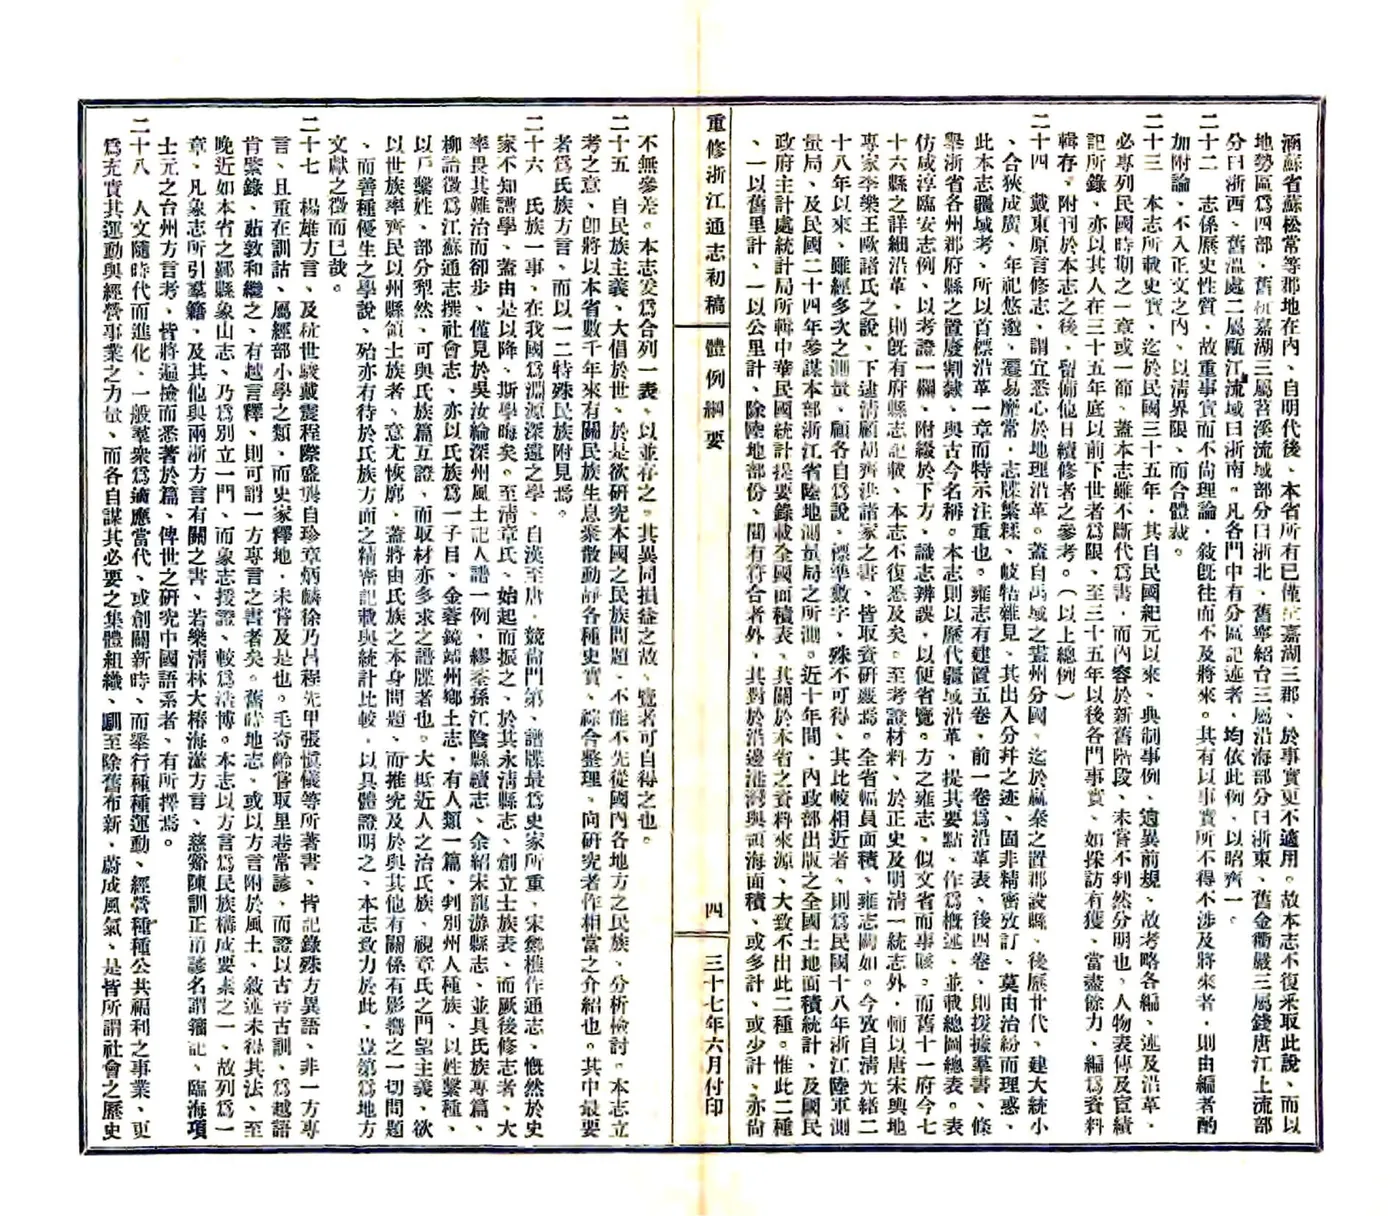 涵蘇省蘇松常等郡地在內、自明代後、本省所有已僅在嘉湖三郡、於事實更不適用。故本志不復釆取此說、而以
地勢區爲四部、舊杭嘉湖三屬苕溪流域部分曰浙北、舊寧紹台三屬沿海部分曰浙東、舊金衢嚴三屬錢唐江上流部
分曰浙西、舊溫處二屬甌江流域曰浙南。凡各門中有分區記述者、均依此例、以昭齊一。
二十二　志係歷史性質、故重事實而不尙理論、敍旣往而不及將來。其有以事實所不得不涉及將來者、則由編者酌
加附論、不入正文之內、以淸界限、而合體裁。
二十三　本志所載史實、迄於民國三十五年、其自民國紀元以來、典制事例、逈異前規、故考略各編、述及沿革、
必專列民國時期之一章或一節、蓋本志雖不斷代爲書、而內容於新舊階段、未嘗不判然分明也。人物表傳及宦績
記所錄、亦以其人在三十五年底以前下世者爲限、至三十五年以後各門事實、如採訪有獲、當盡餘力、編爲資料
輯存、附刊於本志之後、留備他日續修者之參考。（以上總例）
二十四　戴東原言修志、謂宜悉心於地理沿革。蓋自禹域之畫州分國、迄於嬴秦之置郡設縣、後歷廿代、建大統小
、合狹成廣、年祀悠邈、遷易靡常、志牒繁糅、岐牾雜見、其出入分幷之迹、固非精密攷訂、莫由治紛而理惑、
此本志疆域考、所以首標沿革一章而特示注重也。雍志有建置五卷、前一卷爲沿革表、後四卷、則援據羣書、條
舉浙省各州郡府縣之置廢割隸、與古今名稱。本志則以歷代疆域沿革、提其要點、作爲概述、並載總圖總表。表
仿咸淳臨安志例、以考證一欄、附綴於下方、識志辨誤、以便省覽。方之雍志、似文省而事賅。而舊十一府今七
十六縣之詳細沿革、則旣有府縣志記載、本志不復悉及矣。至考證材料、於正史及明淸一統志外、輔以唐宋輿地
專家李樂王歐諸氏之說、下逮淸顧胡齊洪諸家之書、皆取資研覈焉。全省幅員面積、雍志闕如。今攷自淸光緒二
十八年以來、雖經多次之測量、顧各自爲說、標準數字、殊不可得、其比較相近者、則爲民國十八年浙江陸軍測
量局、及民國二十四年參謀本部浙江省陸地測量局之所測。近十年間、內政部出版之全國土地面積統計、及國民
政府主計處統計局所輯中華民國統計提要錄載全國面積表、其關於本省之資料來源、大致不出此二種。惟此二種
、一以舊里計、一以公里計、除陸地部份、間有符合者外、其對於沿邊港灣與領海面積、或多計、或少計、亦尙
重修浙江通志初稿
體例綱要
四
三十七年六月付印
不無參差。本志爰爲合列一表、以並存之。其異同損益之故、覽者可自得之也。
二十五　自民族主義、大倡於世、於是欲研究本國之民族問題、不能不先從國內各地方之民族、分析檢討。本志立
考之意、卽將以本省數千年來有關民族生息聚散動靜各種史實、綜合整理、向研究者作相當之介紹也。其中最要
者爲氏族方言、而以一二特殊民族附見焉。
二十六　氏族一事、在我國爲淵源深遠之學、自漢至唐、競尙門第、譜牒最爲史家所重、宋鄭樵作通志、慨然於史
家不知譜學、蓋由是以降、斯學晦矣。至淸章氏、始起而振之、於其永淸縣志、創立士族表、而厥後修志者、大
率畏其難治而卻步、僅見於吳汝綸深州風土記人譜一例、繆荃孫江陰縣續志、余紹宋龍游縣志、並具氏族專篇、
柳詒徵爲江蘇通志撰社會志、亦以氏族爲一子目、金蓉鏡靖州鄉土志、有人類一篇、判別州人種族、以姓繫種、
以戶繫姓、部分犁然、可與氏族篇互證、而取材亦多求之譜牒者也。大抵近人之治氏族、視章氏之門望主義、欲
以世族率齊民以州縣領士族者、意尤恢廓、蓋將由氏族之本身問題、而推究及於與其他有關係有影響之一切問題
、而善種優生之學說、殆亦有待於氏族方面之精密記載與統計比較、以具體證明之、本志致力於此、豈第爲地方
文獻之徵而已哉。
二十七　楊雄方言、及杭世駿戴震程際盛龔自珍章炳麟徐乃昌程先甲張愼儀等所著書、皆記錄殊方異語、非一方專
言、且重在訓詁、屬經部小學之類、而史家釋地、未嘗及是也。毛奇齡嘗取里巷常諺、而證以古音古訓、爲越語
肯綮錄、茹敦和繼之、有越言釋、則可謂一方專言之書者矣。舊時地志、或以方言附於風土、敍述未得其法、至
晚近如本省之鄞縣象山志、乃爲別立一門、而象志援證、較爲浩博。本志以方言爲民族構成要素之一、故列爲一
章、凡象志所引羣籍、及其他與兩浙方言有關之書、若樂淸林大椿海濱方言、慈谿陳訓正甬諺名謂籀記、臨海項
士元之台州方言考、皆將遍檢而悉著於篇、俾世之研究中國語系者、有所擇焉。
二十八　人文隨時代而進化、一般羣衆爲適應當代、或創闢新時、而舉行種種運動、經營種種公共福利之事業、更
爲充實其運動與經營事業之力量、而各自謀其必要之集體組織、馴至除舊布新、蔚成風氣、是皆所謂社會之歷史